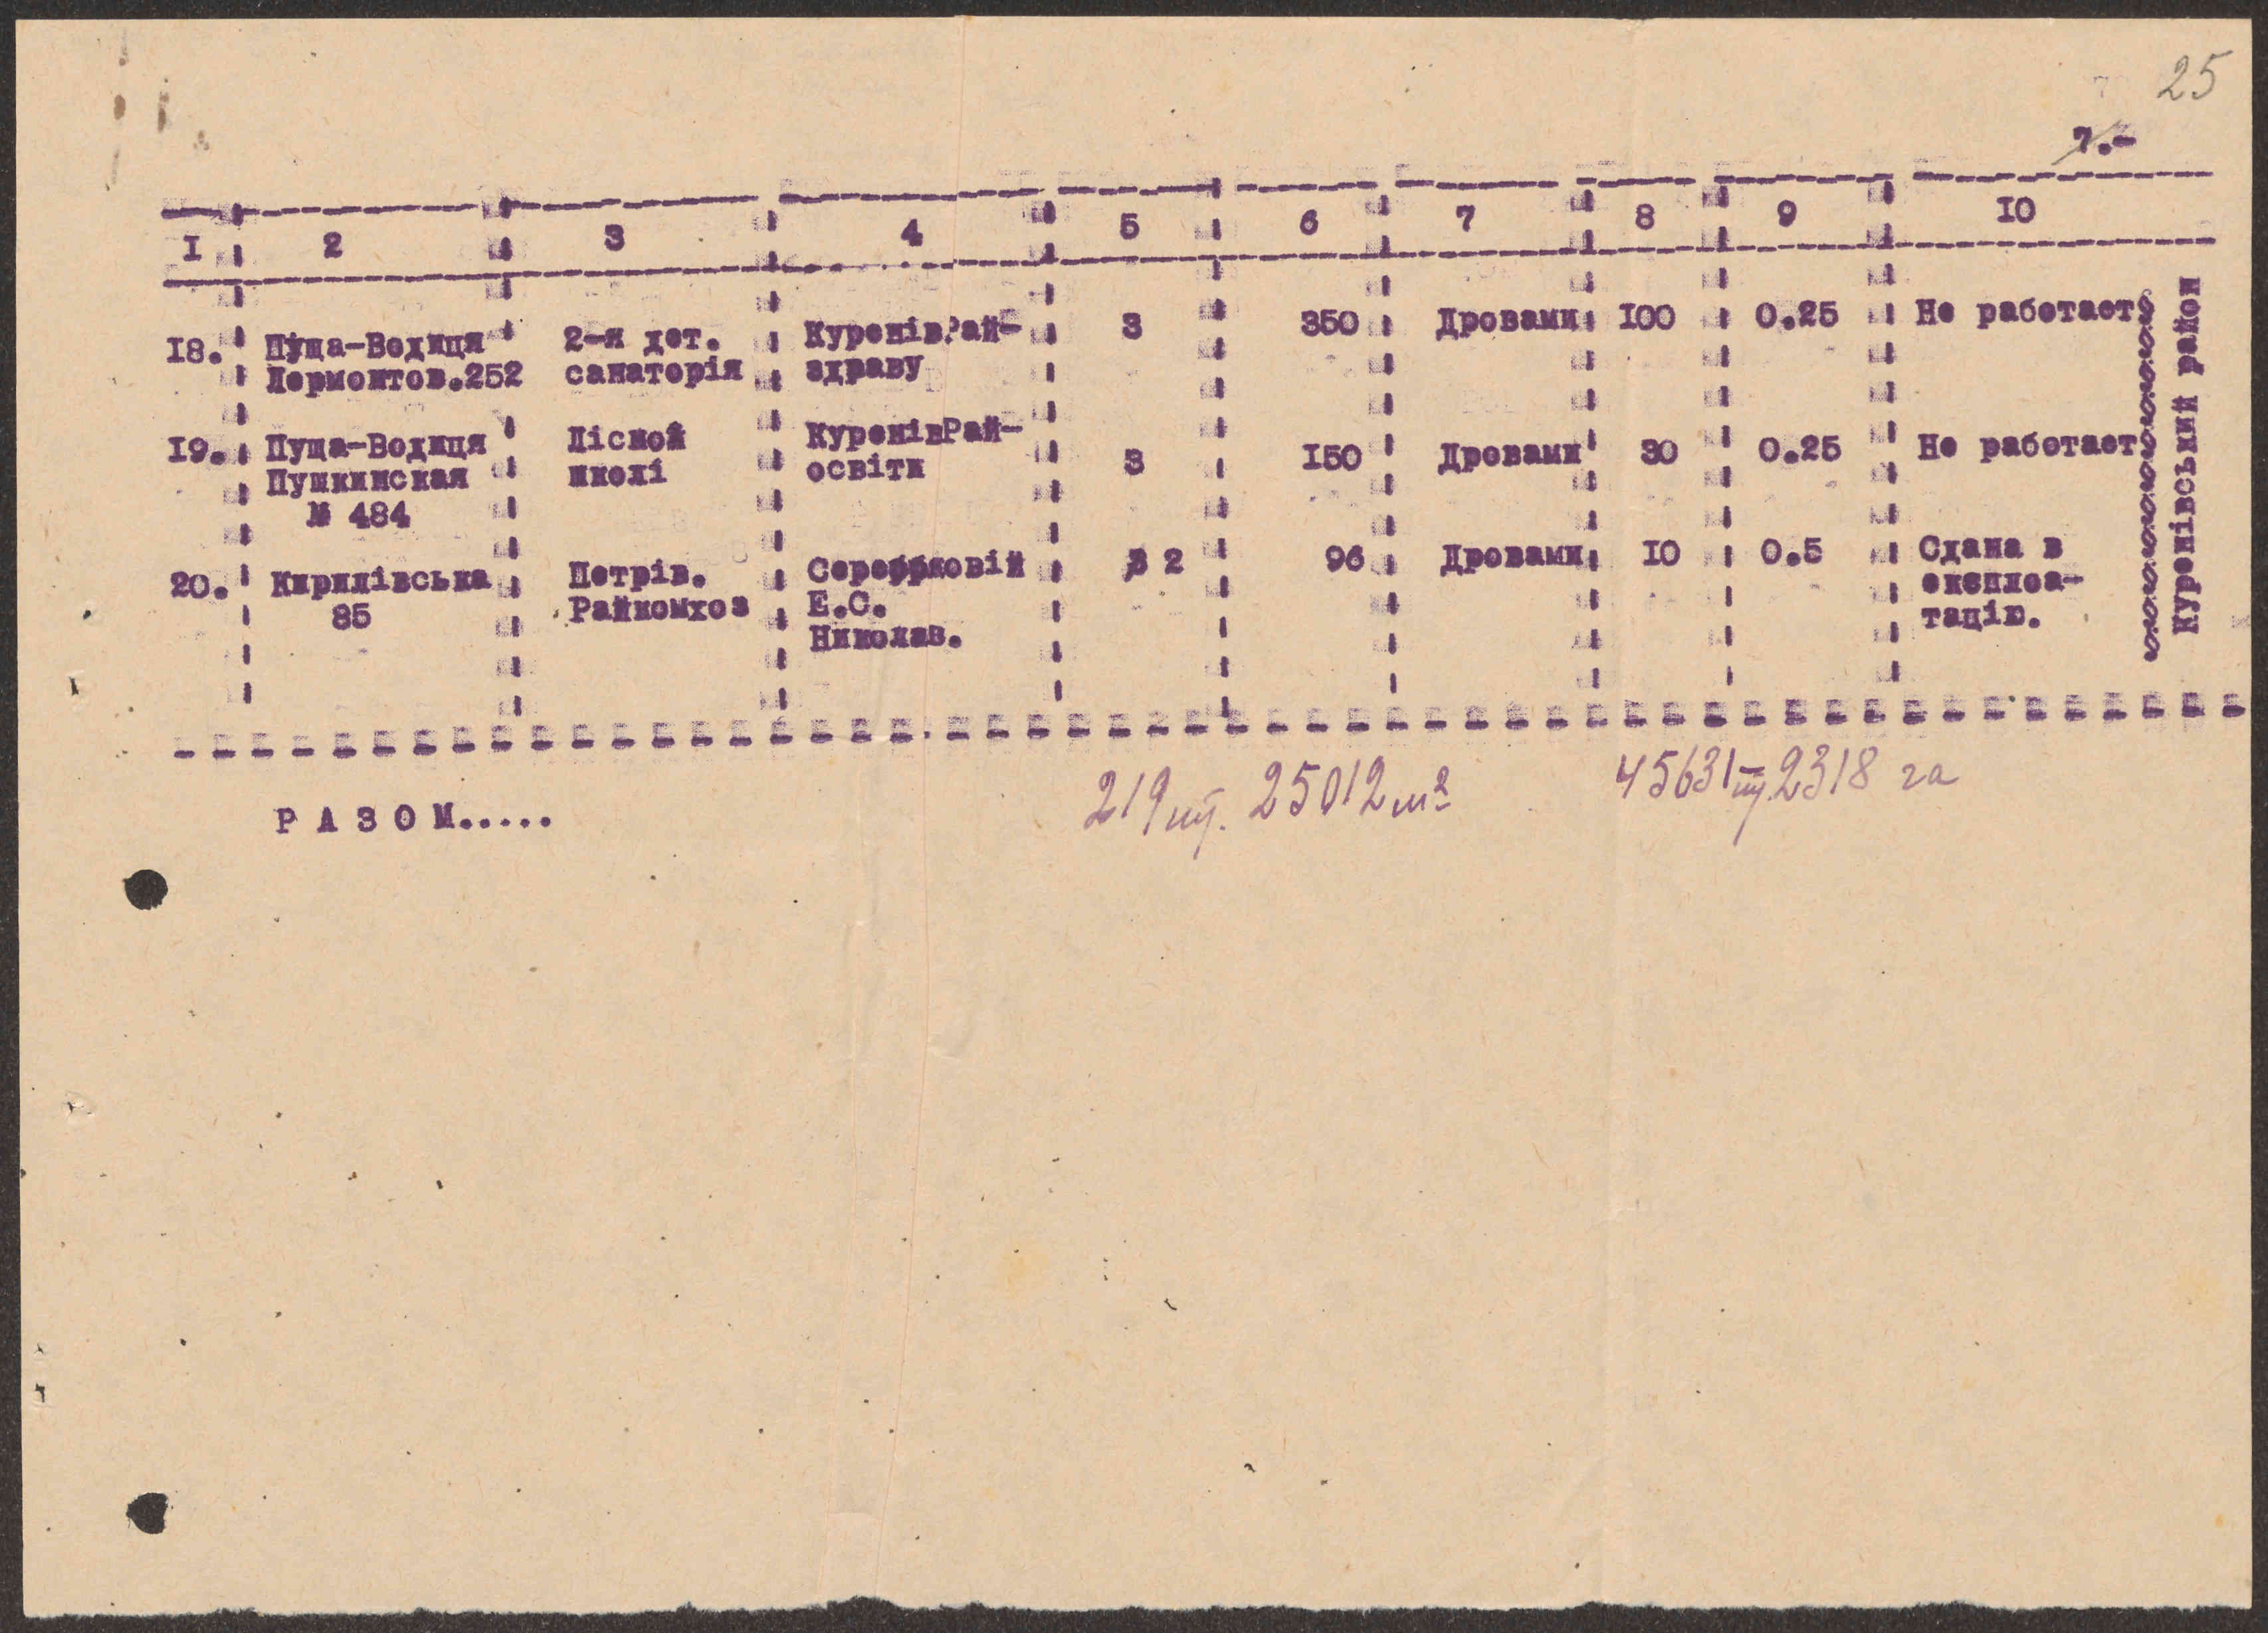 25
7.-
I 2 3 4 5 6 7 8 9 IO
I8. Пуща-Водиця 2-я дет. КуренівРай- 3 350 Дровами IOO 0.25 Не работает
Лермонтов.252 санаторія здраву
I9. Пуща-Водиця Лісной КуренівРай- 3 I50 Дровами 30 0.25 Не работает
Пушкинская школі освіти
№ 484
20. Кирилівська Петрів. 2 96 Дровами IO 0.5 Сдана в
85 Райкомхоз Е.С. експлоа-
Николав. тацію.
Куренівський район
Р А З О М.....
219 шт. 25012 м2 45631 шт. 2318 га